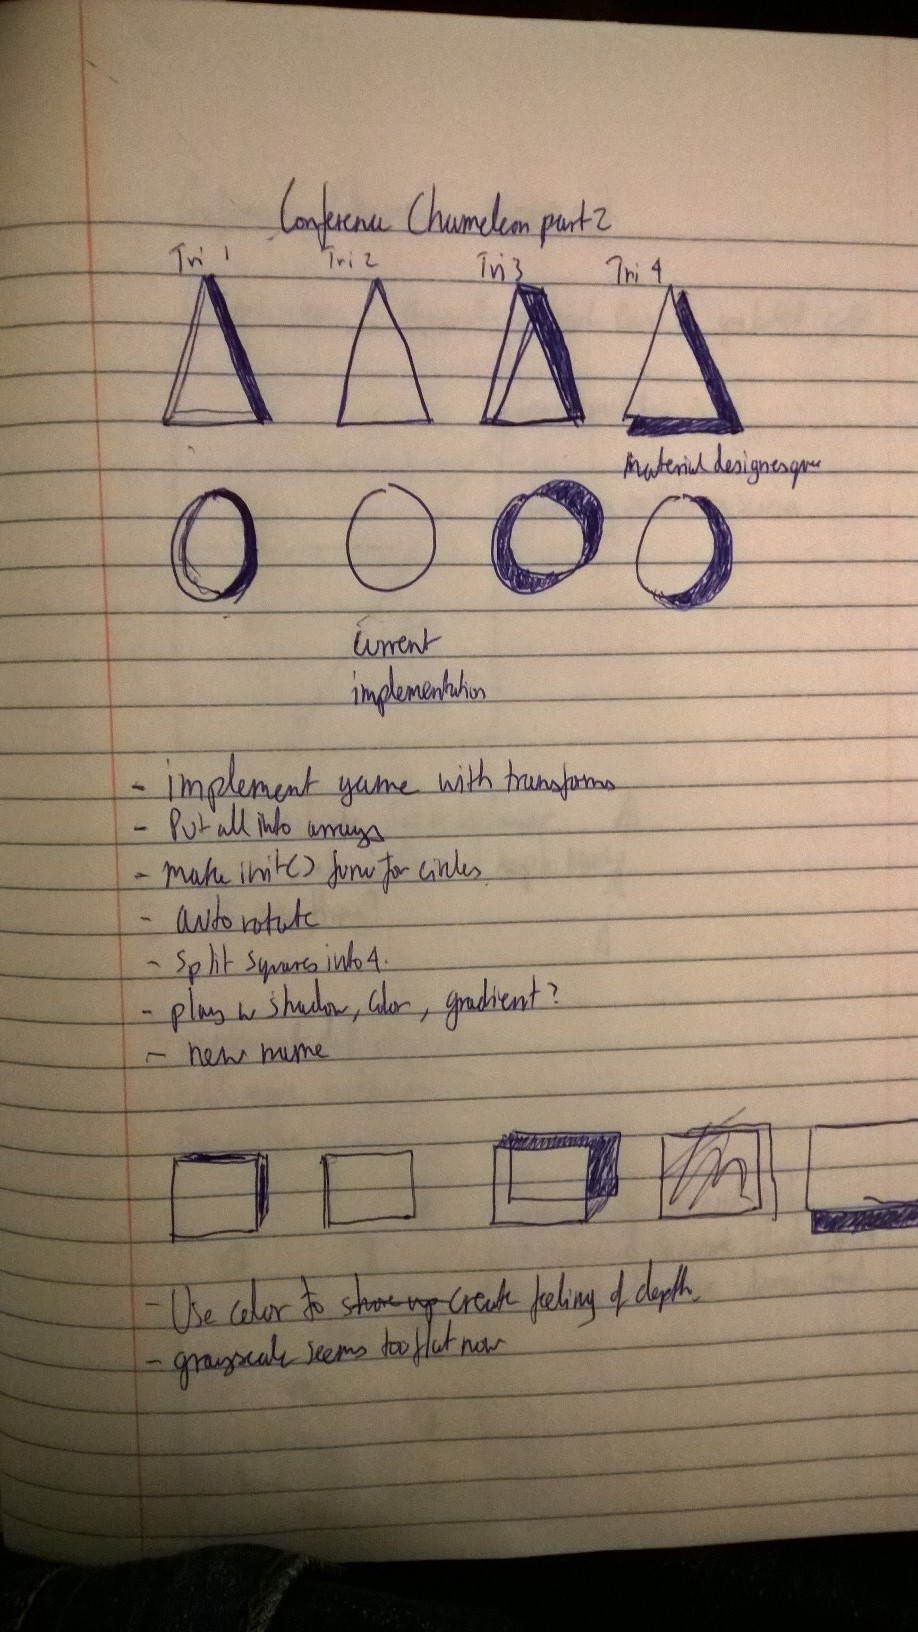 Conference Chameleon part 2
Tri 1 Tri 2 Tri 3 Tri 4
Material designesque
Current
implementation
- implement game with transforms
- Put all into arrays
- make init() func for circles
- auto rotate
- split squares into 4.
- play w shadow, color, gradient?
- new name
- Use color to show up create feeling of depth.
- grayscale seems too flat now